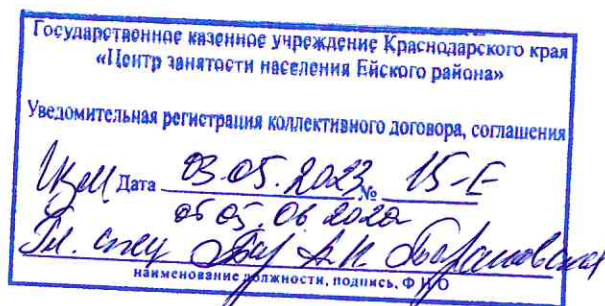 Государственное казенное учреждение Краснодарского края
«Центр занятости населения Ейского района»
Уведомительная регистрация коллективного договора, соглашения
Дата 03.05.2023 № 15-Е
от 05.06.2020
Гл. спец А.Н.
наименование должности, подпись, Ф.И.О